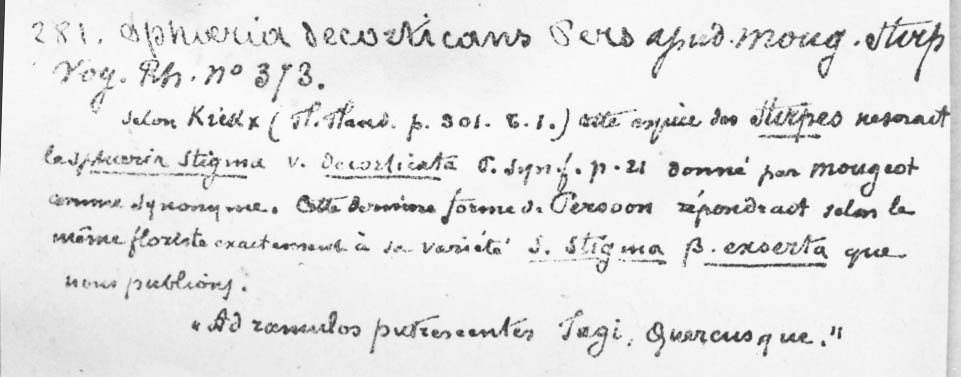 281. Sphaeria decorticans Pers apud. Moug. Stirp
Vog. Rh. nº 373.
Selon Kickx (Fl. Fland. p. 301. t. 1.) cette espèce des Stirpes ne serait
la Sphaeria Stigma v. decorticata P. Syn. f. p. 21 donné par Mougeot
comme synonyme. Cette dernière forme de Persoon répondrait selon le
même floriste exactement à sa variété S. Stigma β. exserta que
nous publions.
"Ad ramulos putrescentes Fagi, Quercusque."